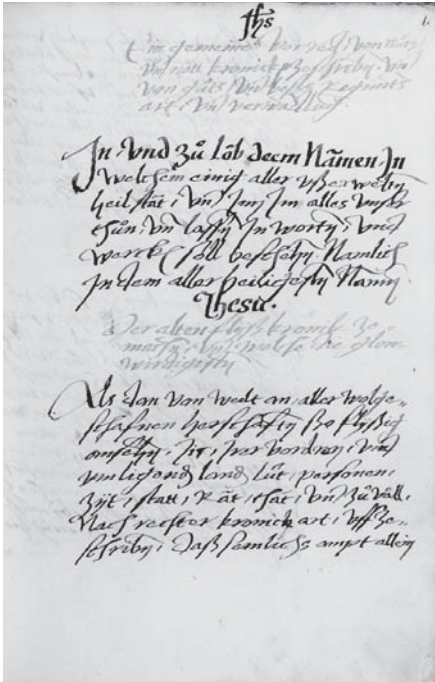 Jhs 1.
Ein gemeine vorred, von nutz
vnd
von vnd Regiments
art, vnd verwaltung.
In, vnd zů lob deem Namen In
welchem einig aller vßerwelten
heil stat, vnd Inn Im alles vnser
thůn, vnd lassen In worten, vnd
wercken soll beschehen. Namlich
In dem aller heiligesten Namen
Jhesu.
Der alten flyß kronick ze
machen, vnd welche die
wirdigisten
Als dan von welt an, aller wolge-
schafnen herschaften ho flyssig
ansehen, ir, irer vordren, vnd
vmligend land, lüt, personen,
zyt, statt, Rät, thät, vnd zůväll,
Nach rechter kronick art, vff ze-
schriben, daß semlichs ampt allein